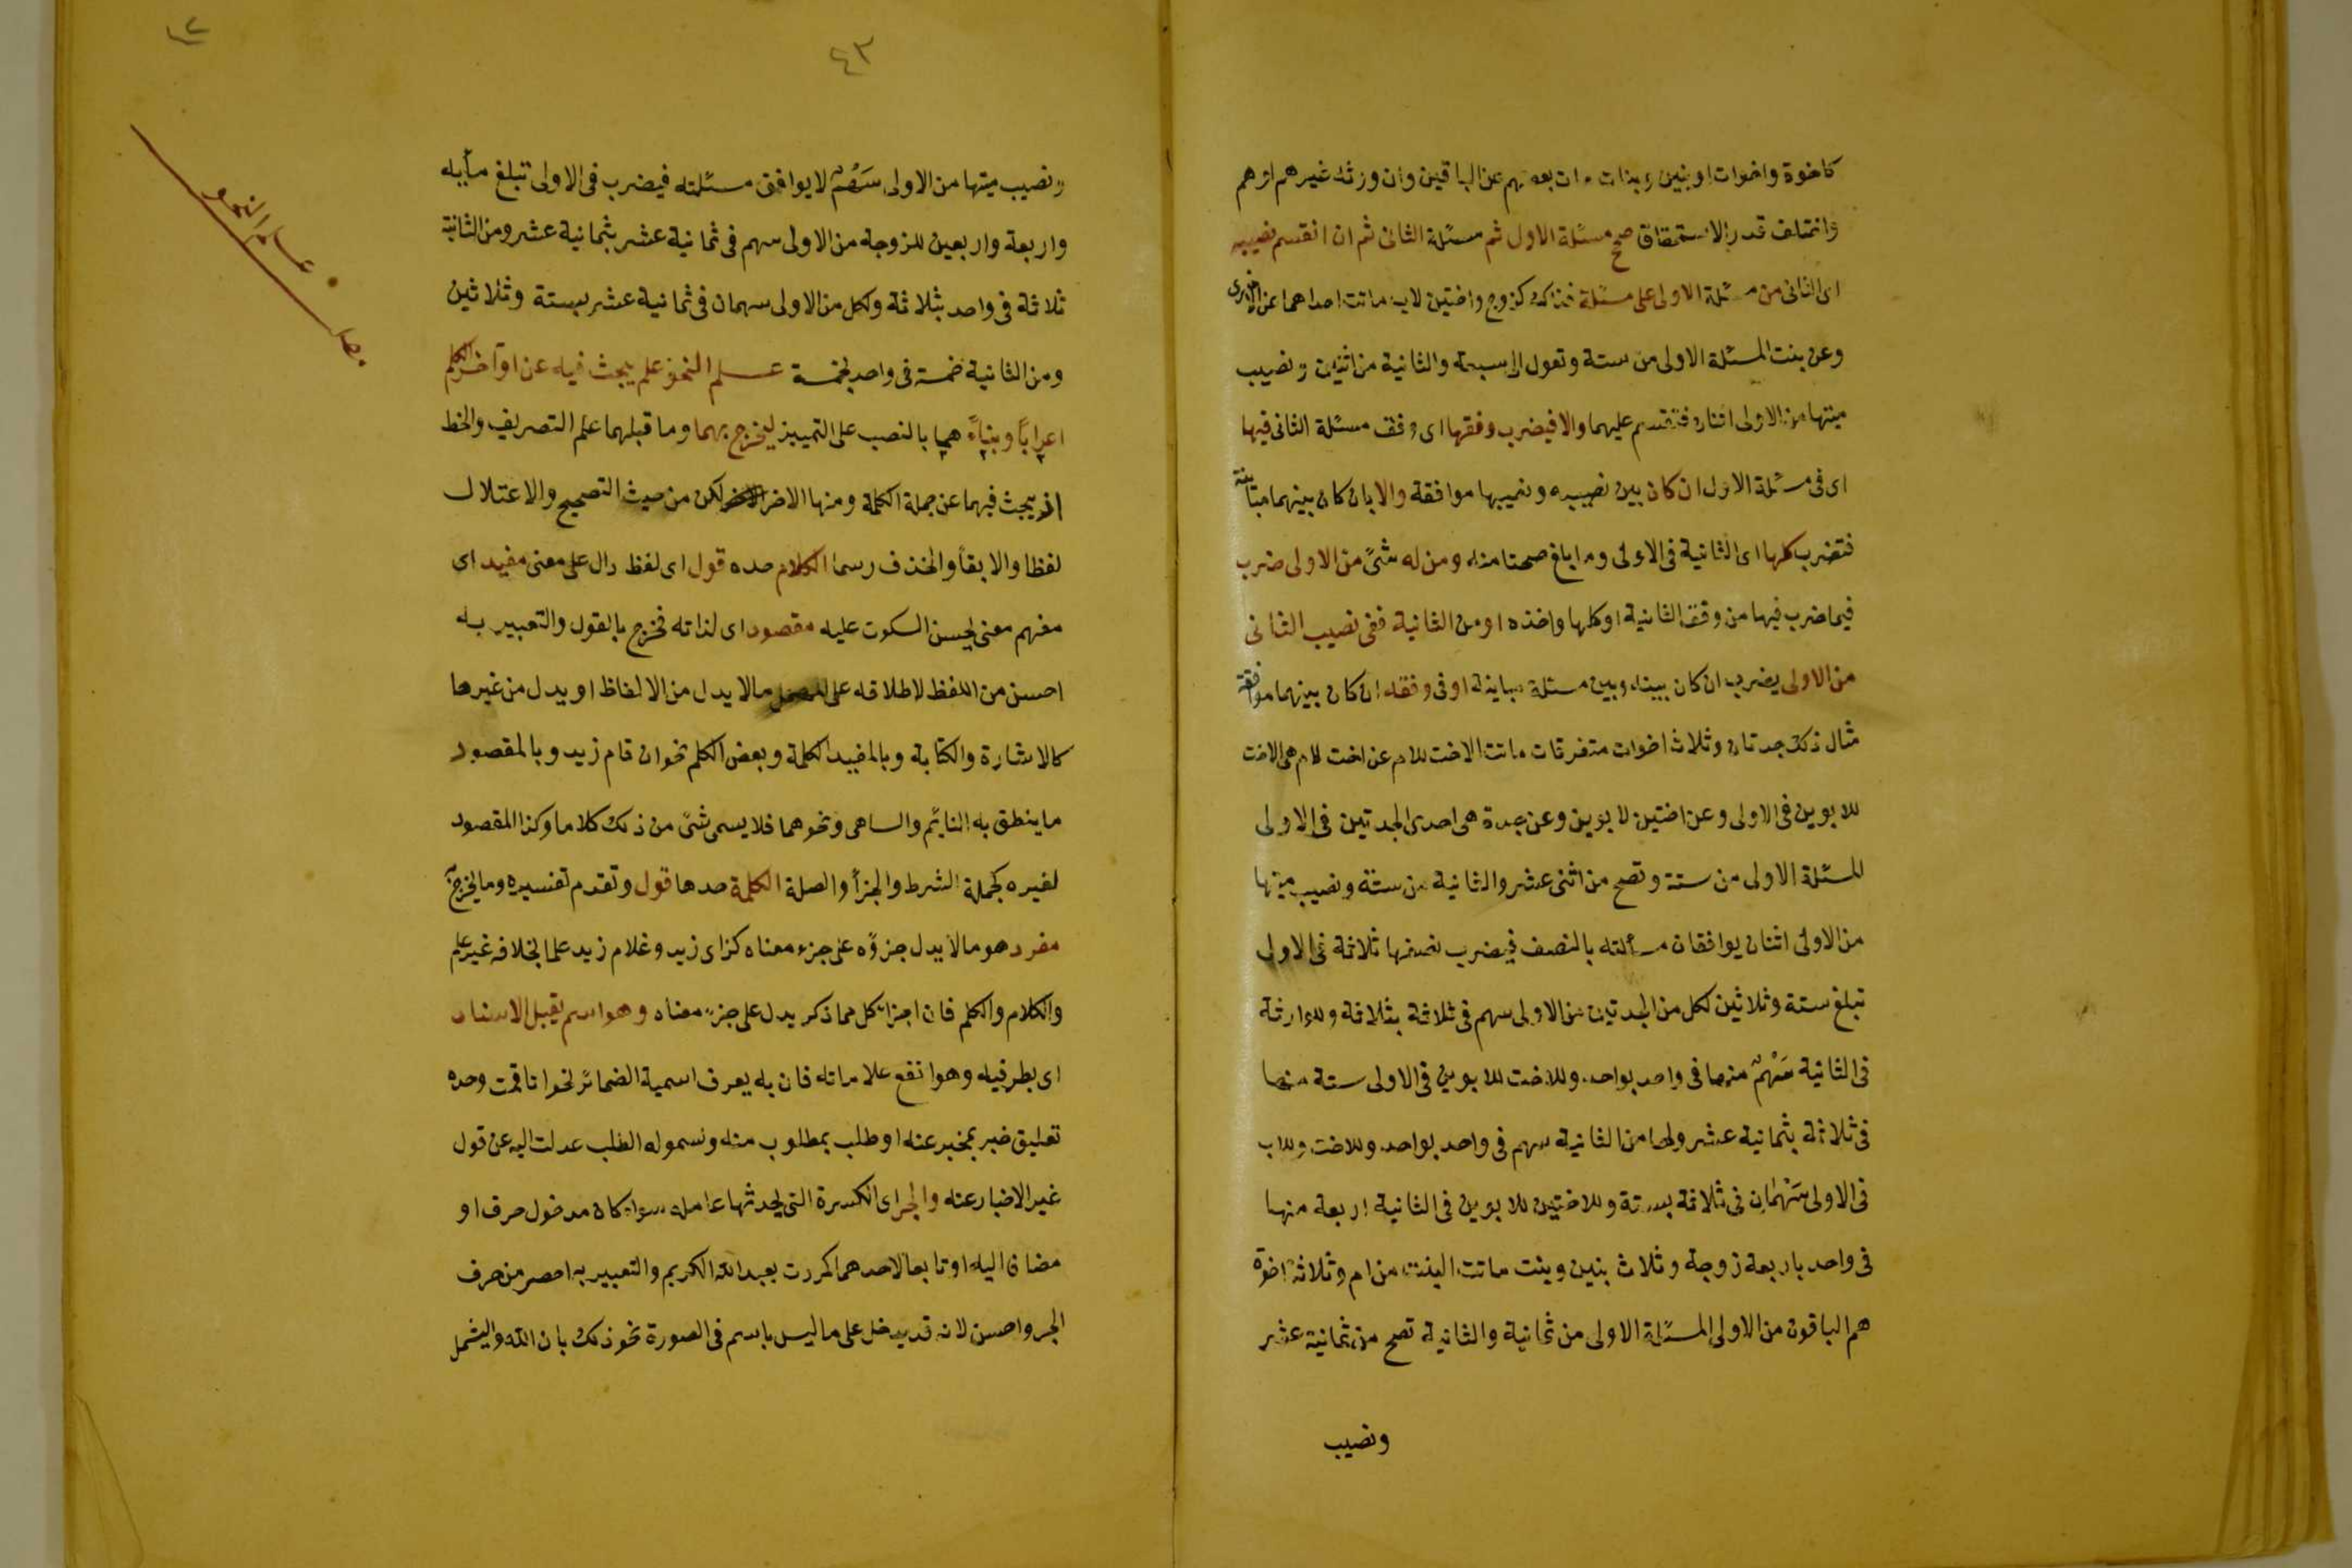 كاخوة واخوات او بنين وبنات مات بعضهم عن الباقين وان ورثه غيرهم او هم
واختلف قدر الاستحقاق صحح مسئلة الاول ثم مسئلة الثانى ثم ان انقسم نصيبه
اى الثانى من مسئلة الاولى على مسئلة فذاك كزوج واختين لاب ماتت احداهما عن الاخرى
وعن بنت المسئلة الاولى من ستة وتعول الى سبعة والثانية من اثنين ونصيب
ميتها من الاولى اثنان فتقسم عليهما والا فيضرب وفقها اى وفق مسئلة الثانى فيها
اى فى مسئلة الاول ان كان بين نصيبه ونصيبها موافقة والا بان كان بينهما مباينة
فتضرب كلها اى الثانية فى الاولى وما بلغ صحتا منه ومن له شئ من الاولى ضرب
فيما ضرب فيها من وفق الثانية او كلها واخذه او من الثانية ففى نصيب الثانى
من الاولى يضرب ان كان بينه وبين مسئلة مباينة او فى وفقه ان كان بينهما موافقة
مثال ذلك جدتان وثلاث اخوات متفرقات ماتت الاخت للام عن اخت لام هى الاخت
للابوين فى الاولى وعن اختين لابوين وعن جدة هى احدى الجدتين فى الاولى
المسئلة الاولى من ستة وتصح من اثنى عشر والثانية من ستة ونصيب ميتها
من الاولى اثنان يوافقان مسألته بالنصف فيضرب نصفها ثلاثة فى الاولى
تبلغ ستة وثلاثين لكل من الجدتين من الاولى سهم فى ثلاثة بثلاثة وللوارثة
فى الثانية سهم منها فى واحد بواحد وللاخت للابوين فى الاولى ستة منها
فى ثلاثة بثمانية عشر ولها من الثانية سهم فى واحد بواحد وللاخت للاب
فى الاولى سهمان فى ثلاثة بستة وللاختين للابوين فى الثانية اربعة منها
فى واحد باربعة زوجة وثلاث بنين وبنت ماتت البنت من ام وثلاثة اخوة
هم الباقون من الاولى المسئلة الاولى من ثمانية والثانية تصح من ثمانية عشر
ونصيب
٤٣
ونصيب ميتها من الاولى سهم لا يوافق مسئلته فيضرب فى الاولى تبلغ مأية
واربعة واربعين للزوجة من الاولى سهم فى ثمانية عشر بثمانية عشر ومن الثانية
ثلاثة فى واحد بثلاثة ولكل من الاولى سهمان فى ثمانية عشر بستة وثلاثين
ومن الثانية خمسة فى واحد بخمسة علم النحو علم يبحث فيه عن اواخر الكلم
اعرابا وبناء هما بالنصب على التمييز ليخرج بهما وما قبلهما علم التصريف والخط
اذ يبحث فيهما عن جملة الكلمة ومنها الاخر لكن من حيث التصحيح والاعتلال
لفظا والابقأ والحذف رسما الكلام حده قول اى لفظ دال على معنى مفيد اى
مفهم معنى يحسن السكوت عليه مقصود اى لذاته فخرج بالقول والتعبير به
احسن من اللفظ لاطلاقه على المهمل مالا يدل من الالفاظ او يدل من غيرها
كالاشارة والكتابة وبالمفيد الكلمة وبعض الكلم نحو ان قام زيد وبالمقصود
ما ينطق به النائم والساهى ونحوهما فلا يسمى شئ من ذلك كلاما وكذا المقصود
لغيره كجملة الشرط والجزأ والصلة الكلمة حدها قول وتقدم تفسيره وما يخرج به
مفرد هو مالا يدل جزؤه على جزء معناه كزاى زيد وغلام زيد علما بخلافه غير علم
والكلام والكلم فان اجزا كل مما ذكر يدل على جزء معناه وهو اسم يقبل الاسناد
اى بطرفيه وهو انفع علاماته فان به يعرف اسمية الضمائر نحو انا قمت وحده
تعليق خبر بمخبر عنه او طلب بمطلوب منه ولشموله الطلب عدلت اليه عن قول
غير الاخبار عنه والجر اى الكسرة التى يحدثها عامله سواء كان مدخول حرف او
مضاف اليه او تابعا لاحدهما كمررت بعبدالله الكريم والتعبير به احصر من حرف
الجر واحسن لانه قد يدخل على ما ليس باسم فى الصورة نحو ذلك بان الله وليشمل
علم النحو